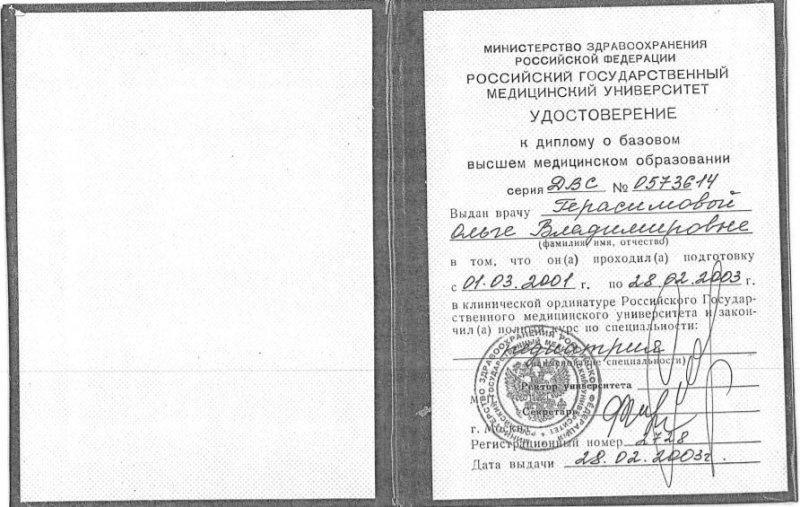 МИНИСТЕРСТВО ЗДРАВООХРАНЕНИЯ
РОССИЙСКОЙ ФЕДЕРАЦИИ
РОССИЙСКИЙ ГОСУДАРСТВЕННЫЙ
МЕДИЦИНСКИЙ УНИВЕРСИТЕТ
УДОСТОВЕРЕНИЕ
к диплому о базовом
высшем медицинском образовании
серия ДВС № 0573614
Выдан врачу Герасимовой
Ольге Владимировне
(фамилия, имя, отчество)
в том, что он(а) проходил(а) подготовку
с 01.03.2001 г. по 28.02.2003 г.
в клинической ординатуре Российского Государ-
ственного медицинского университета и закон-
чил(а) полный курс по специальности:
педиатрия
(наименование специальности)
Ректор университета
М.
Секретарь
г. Москва
Регистрационный номер 2728
Дата выдачи 28.02.2003г.